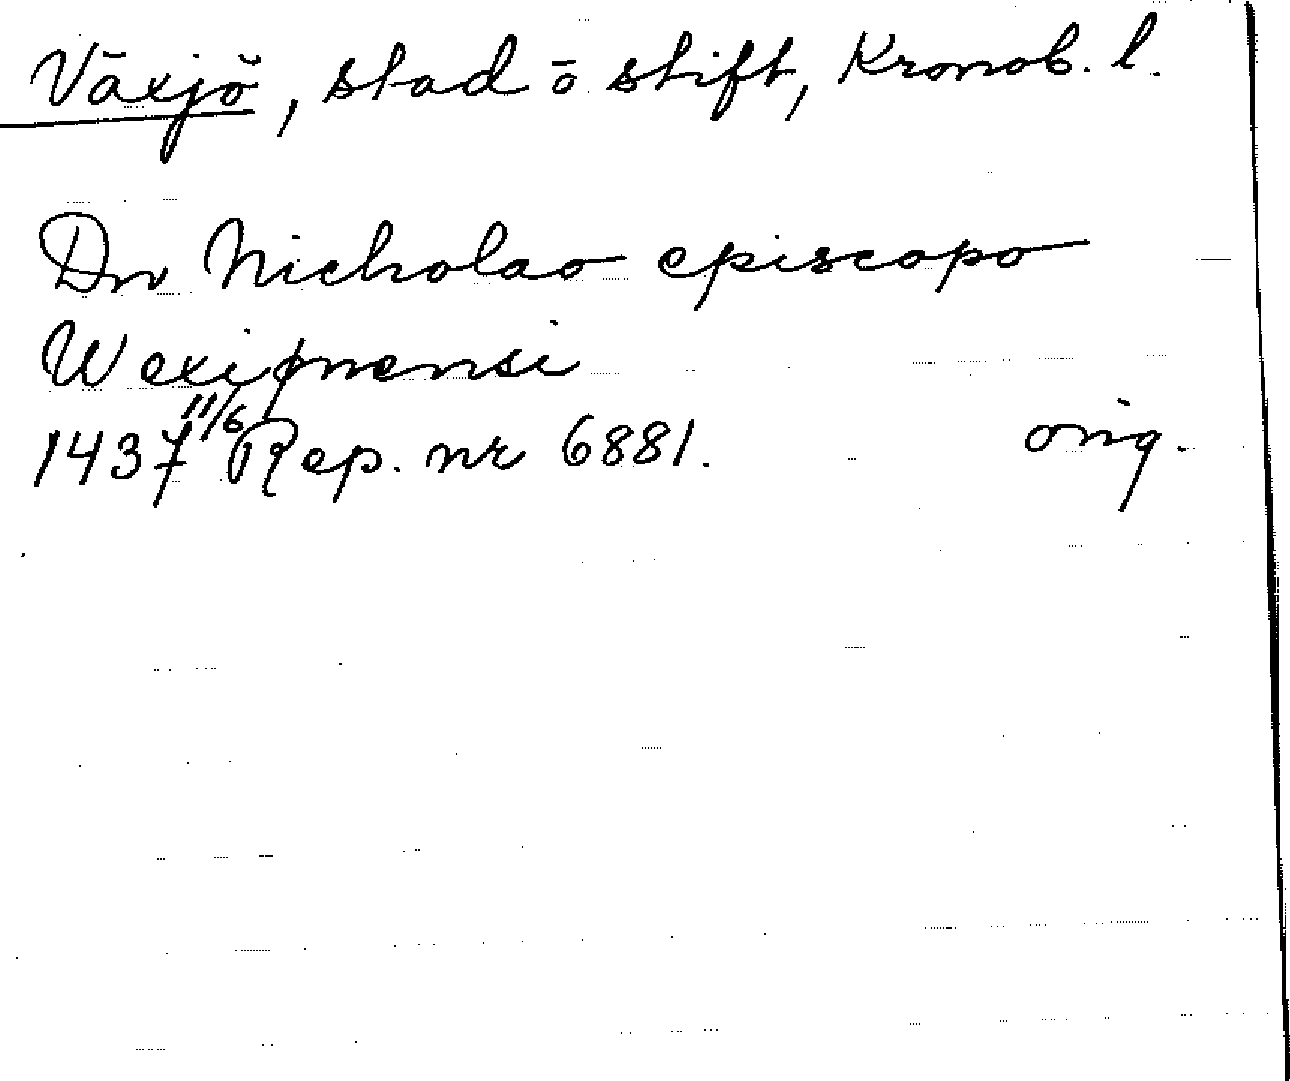 Växjö, stad ō stift, Kronob. l.
Dn Nicholao episcopo
Wexionensi
1437 11/6 Rep. nr 6881. orig.